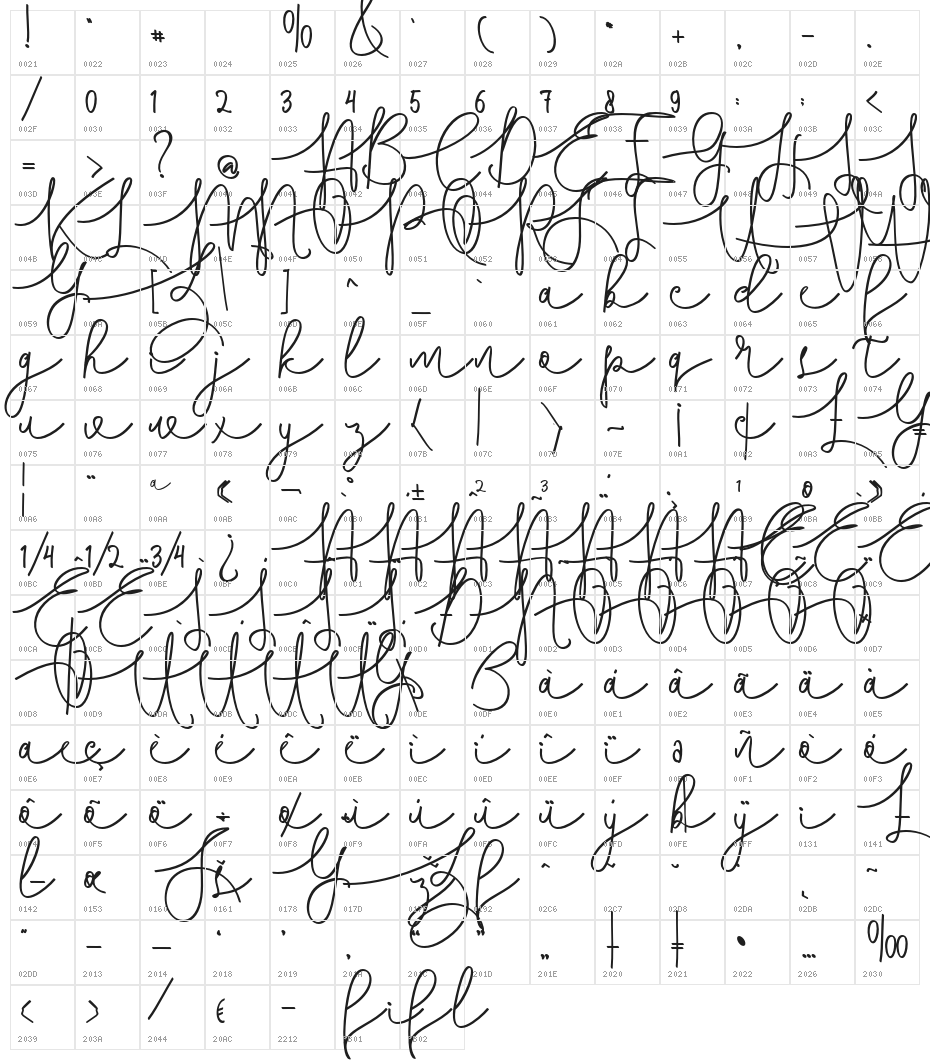 ! " # % & ' ( ) * + , - .
0021 0022 0023 0024 0025 0026 0027 0028 0029 002A 002B 002C 002D 002E
/ 0 1 2 3 4 5 6 7 8 9 : ; <
002F 0030 0031 0032 0033 0034 0035 0036 0037 0038 0039 003A 003B 003C
= > ? @ A B C D E F G H I J
003D 003E 003F 0040 0041 0042 0043 0044 0045 0046 0047 0048 0049 004A
K L M N O P Q R S T U V W X
004B 004C 004D 004E 004F 0050 0051 0052 0053 0054 0055 0056 0057 0058
Y Z [ \ ] ^ _ ` a b c d e f
0059 005A 005B 005C 005D 005E 005F 0060 0061 0062 0063 0064 0065 0066
g h i j k l m n o p q r s t
0067 0068 0069 006A 006B 006C 006D 006E 006F 0070 0071 0072 0073 0074
u v w x y z { | } ~ ¡ ¢ £ ¥
0075 0076 0077 0078 0079 007A 007B 007C 007D 007E 00A1 00A2 00A3 00A5
¦ ¨ ª « ¬ ° ± ² ³ ´ ¸ ¹ º »
00A6 00A8 00AA 00AB 00AC 00B0 00B1 00B2 00B3 00B4 00B8 00B9 00BA 00BB
1/4 1/2 3/4 ¿ À Á Â Ã Ä Å Æ Ç È É
00BC 00BD 00BE 00BF 00C0 00C1 00C2 00C3 00C4 00C5 00C6 00C7 00C8 00C9
Ê Ë Ì Í Î Ï Ð Ñ Ò Ó Ô Õ Ö ×
00CA 00CB 00CC 00CD 00CE 00CF 00D0 00D1 00D2 00D3 00D4 00D5 00D6 00D7
Ø Ù Ú Û Ü Ý Þ ß à á â ã ä å
00D8 00D9 00DA 00DB 00DC 00DD 00DE 00DF 00E0 00E1 00E2 00E3 00E4 00E5
æ ç è é ê ë ì í î ï ð ñ ò ó
00E6 00E7 00E8 00E9 00EA 00EB 00EC 00ED 00EE 00EF 00F0 00F1 00F2 00F3
ô õ ö ÷ ø ù ú û ü ý þ ÿ ı Ł
00F4 00F5 00F6 00F7 00F8 00F9 00FA 00FB 00FC 00FD 00FE 00FF 0131 0141
ł œ Š š Ÿ Ž ž ƒ ˆ ˇ ˘ ˚ ˛ ˜
0142 0153 0160 0161 0178 017D 017E 0192 02C6 02C7 02D8 02DA 02DB 02DC
˝ – — ‘ ’ ‚ “ ” „ † ‡ • … ‰
02DD 2013 2014 2018 2019 201A 201C 201D 201E 2020 2021 2022 2026 2030
‹ › ⁄ € − fi fl
2039 203A 2044 20AC 2212 FB01 FB02